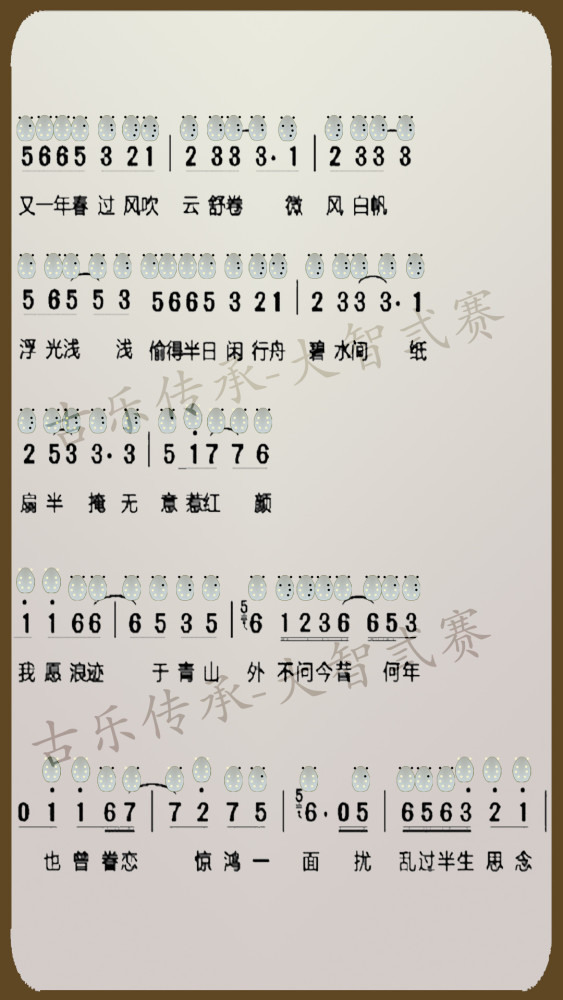 5665 3 21 | 2 33 3· 1 | 2 33 3
又一年春 过 风吹 云 舒卷 微 风 白帆
5 65 5 3 5665 3 21 | 2 33 3· 1
浮 光浅 浅 偷得半日 闲 行舟 碧 水间 纸
古乐传承-大智贰赛
2 53 3· 3 | 5 17 7 6
扇 半 掩 无 意 惹红 颜
1 1 66 | 6 5 3 5 | 5 6 1236 653
我 愿 浪迹 于 青 山 外 不问今昔 何年
古乐传承-大智贰赛
0 1 1 67 | 7 2 7 5 | 5 6· 05 | 6563 2 1 |
也 曾 眷恋 惊 鸿 一 面 扰 乱过半生 思 念